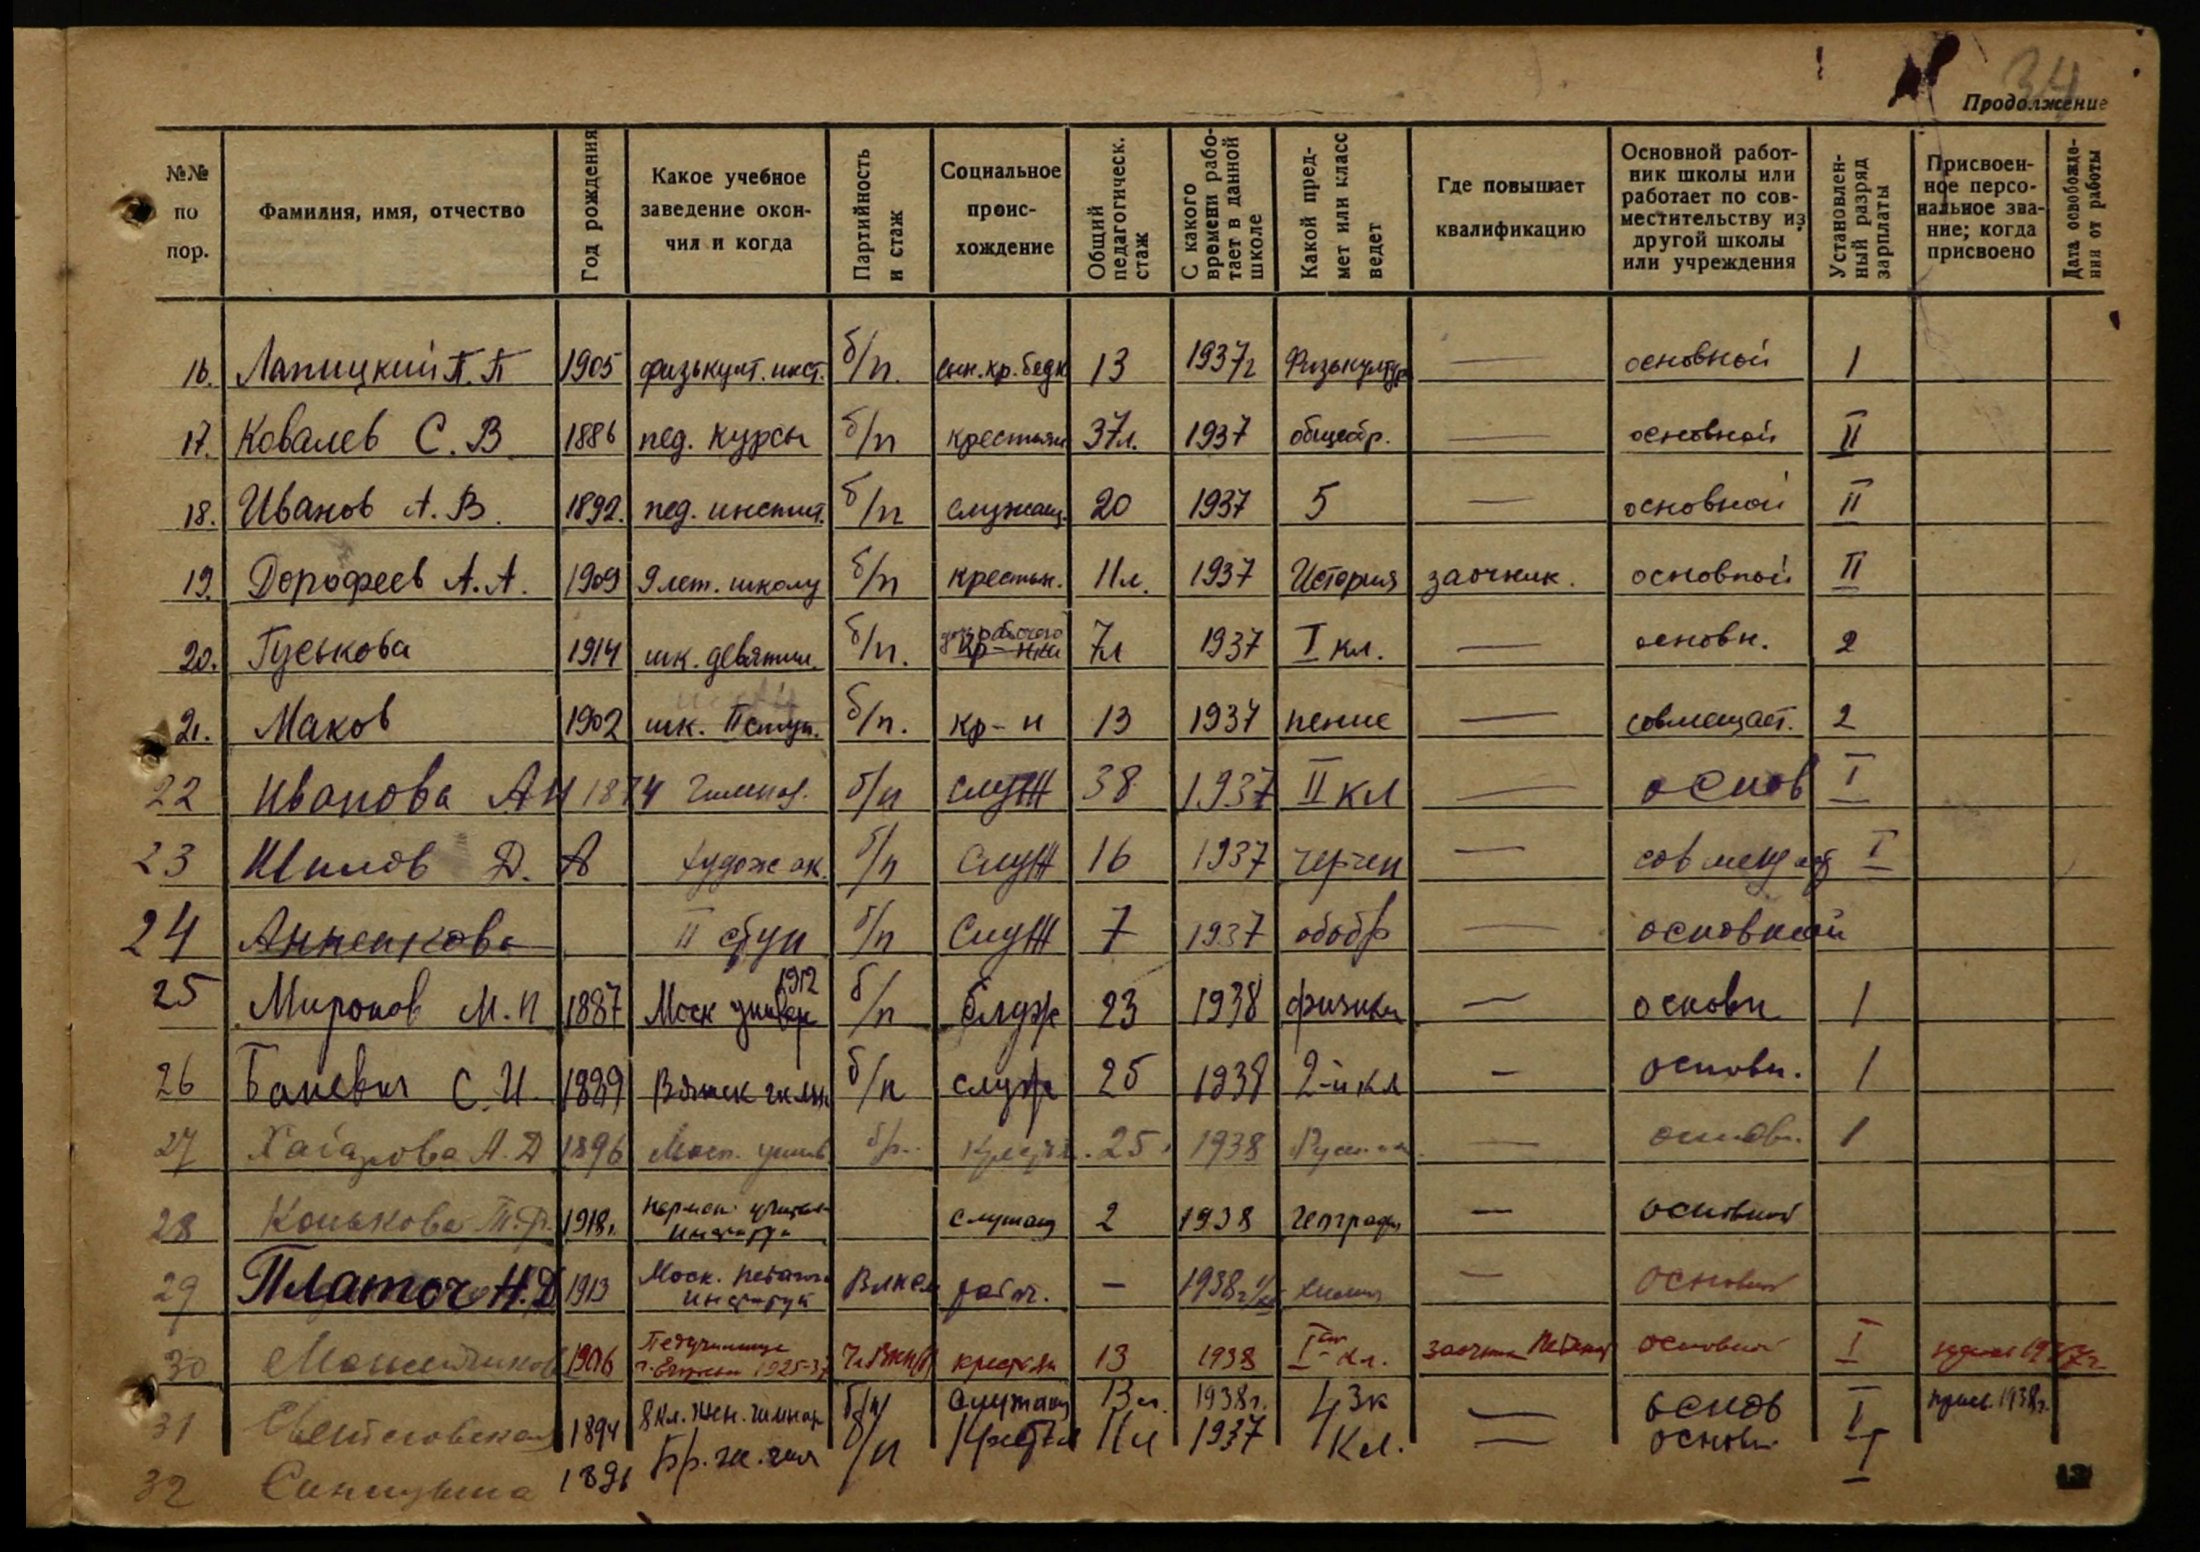 34
Продолжение
№№ по пор. Фамилия, имя, отчество Год рождения Какое учебное заведение окончил и когда Партийность и стаж Социальное происхождение Общий педагогическ. стаж С какого времени работает в данной школе Какой предмет или класс ведет Где повышает квалификацию Основной работник школы или работает по совместительству из другой школы или учреждения Установленный разряд зарплаты Присвоенное персональное звание; когда присвоено Дата освобождения от работы
16. Лапицкий П. П 1905 физкульт. инст. б/п. сын. кр. бедн 13 1937г Физкультур — основной 1
17. Ковалев С. В 1886 пед. курсы б/п крестьян 37л. 1937 общеобр. — основной II
18. Иванов А. В. 1892. пед. инстит. б/п служащ. 20 1937 5 — основной II
19. Дорофеев А. А. 1909 9 лет. школу б/п крестьн. 11л. 1937 История заочник. основной II
20. Гуськова 1914 шк. девятил. б/п. рабочего 7л 1937 I кл. — основн. 2
21. Маков 1902 шк. II ступ. б/п. кр-н 13 1937 пение — совмещает. 2
22 Иванова А Н 1874 гимназ. б/п служ 38 1937 II кл — основ I
23 Шилов Д. А художес б/п служ 16 1937 черчен — совмещает I
24 Анненкова II ступ б/п Служ 7 1937 — основной
25 Миронов М. П 1887 Моск универ 1912 б/п Служ 23 1938 физика — основн 1
26 Баневич С. И. 1889 Вятск гимн б/п служ 25 1938 2-й кл — основн. 1
27 А. Д 1896 Моск. унив б/п. 25 1938 — основн. 1
28 Конькова 1918г. служащ 2 1938 географ — основной
29 Платоч Н. Д 1913 Моск. педагог Институт Влксм рабоч. — 1938г. химия — основной
30 1906 Педучилище крестьян 13 1938 I кл. заочник основной I
31 1894 8 кл. жен. гимназ б/п служащ 13 л. 1938г. 4 3к — основ I присв. 1938г.
32 Синицына 1896 б/п 11л 1937 4 Кл. — основн I